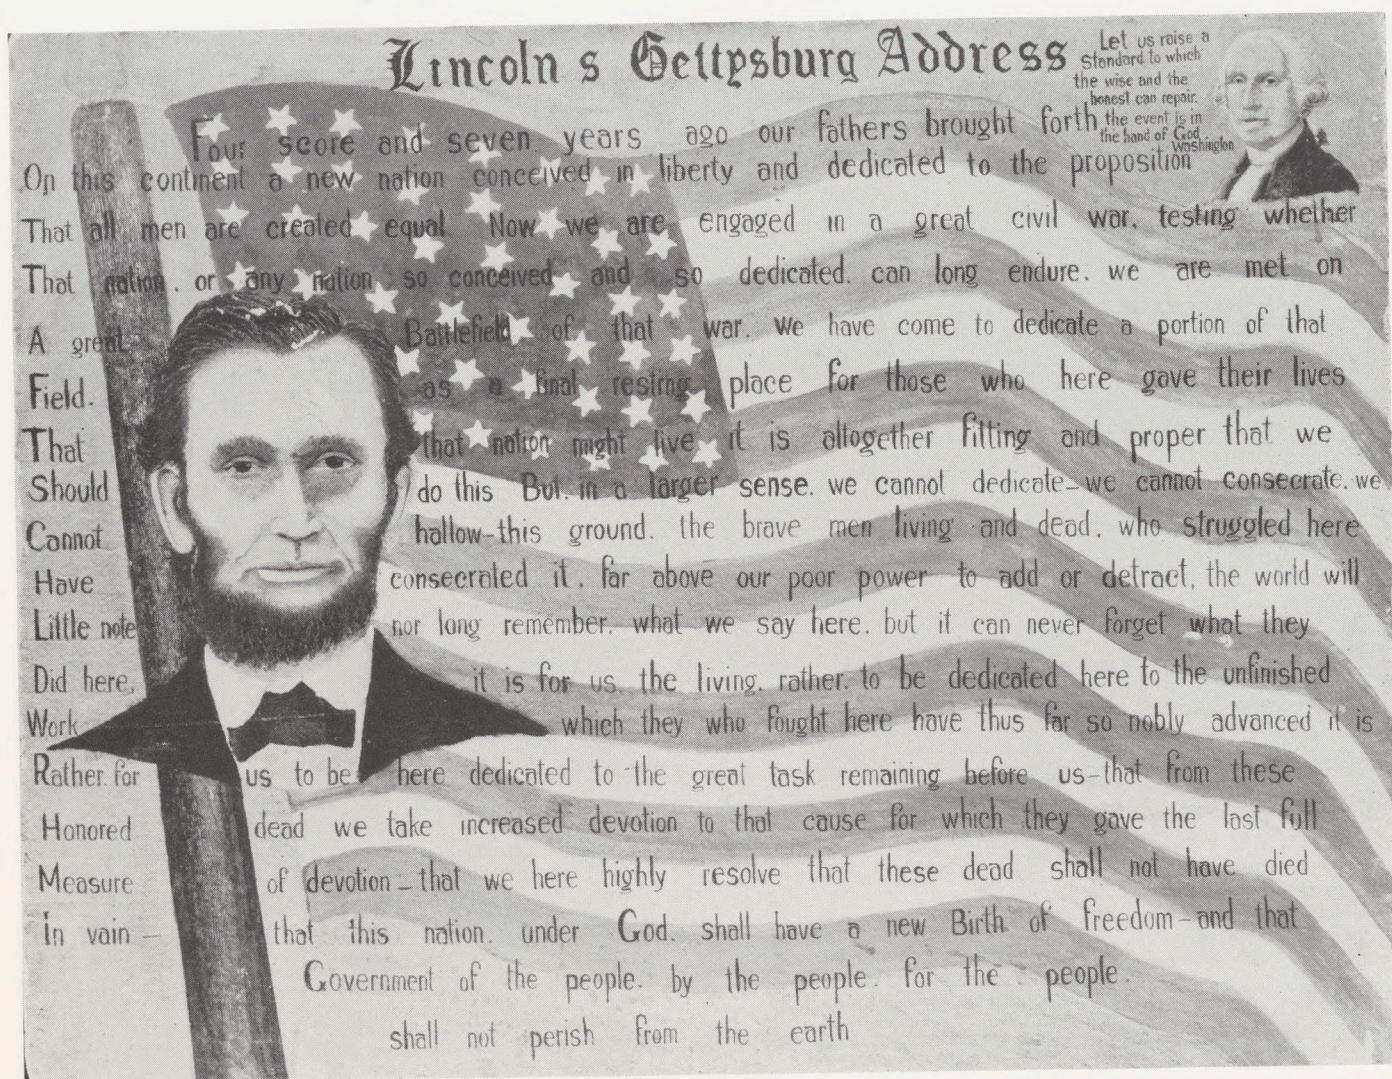 Lincoln s Gettysburg Address
Let us raise a
Standard to which
the wise and the
honest can repair.
the event is in
the hand of God
Washington
Four score and seven years ago our fathers brought forth
On this continent a new nation conceived in liberty and dedicated to the proposition
That all men are created equal Now we are engaged in a great civil war. testing whether
That nation. or any nation so conceived and so dedicated. can long endure. we are met on
A great Battlefield of that war. We have come to dedicate a portion of that
Field. as a final resting place for those who here gave their lives
That that nation might live it is altogether fitting and proper that we
Should do this But. in a larger sense. we cannot dedicate-we cannot consecrate. we
Cannot hallow-this ground. the brave men living and dead. who struggled here
Have consecrated it. far above our poor power to add or detract, the world will
Little note nor long remember. what we say here. but it can never forget what they
Did here, it is for us. the living. rather. to be dedicated here to the unfinished
Work which they who fought here have thus far so nobly advanced it is
Rather for us to be here dedicated to the great task remaining before us-that from these
Honored dead we take increased devotion to that cause for which they gave the last full
Measure of devotion-that we here highly resolve that these dead shall not have died
In vain- that this nation. under God. shall have a new Birth of freedom-and that
Government of the people. by the people. for the people.
shall not perish from the earth